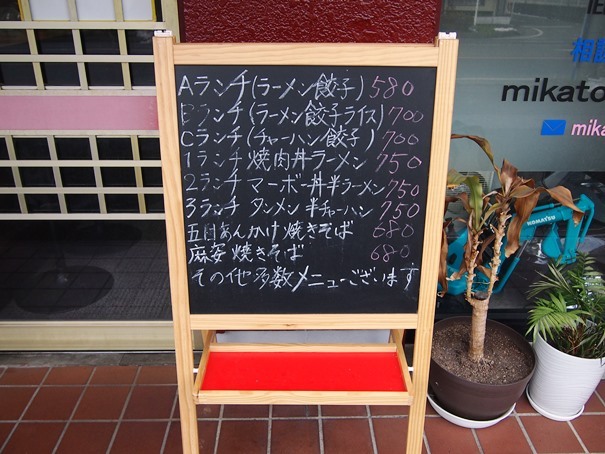 Aランチ(ラーメン餃子) 580
Bランチ(ラーメン餃子ライス) 700
Cランチ(チャーハン餃子) 700
1ランチ 焼肉丼ラーメン 750
2ランチ マーボー丼半ラーメン 750
3ランチ タンメン半チャーハン 750
五目あんかけ焼きそば 680
麻婆焼きそば 680
その他多数メニューございます
相談
mikato
mika
KOMATSU